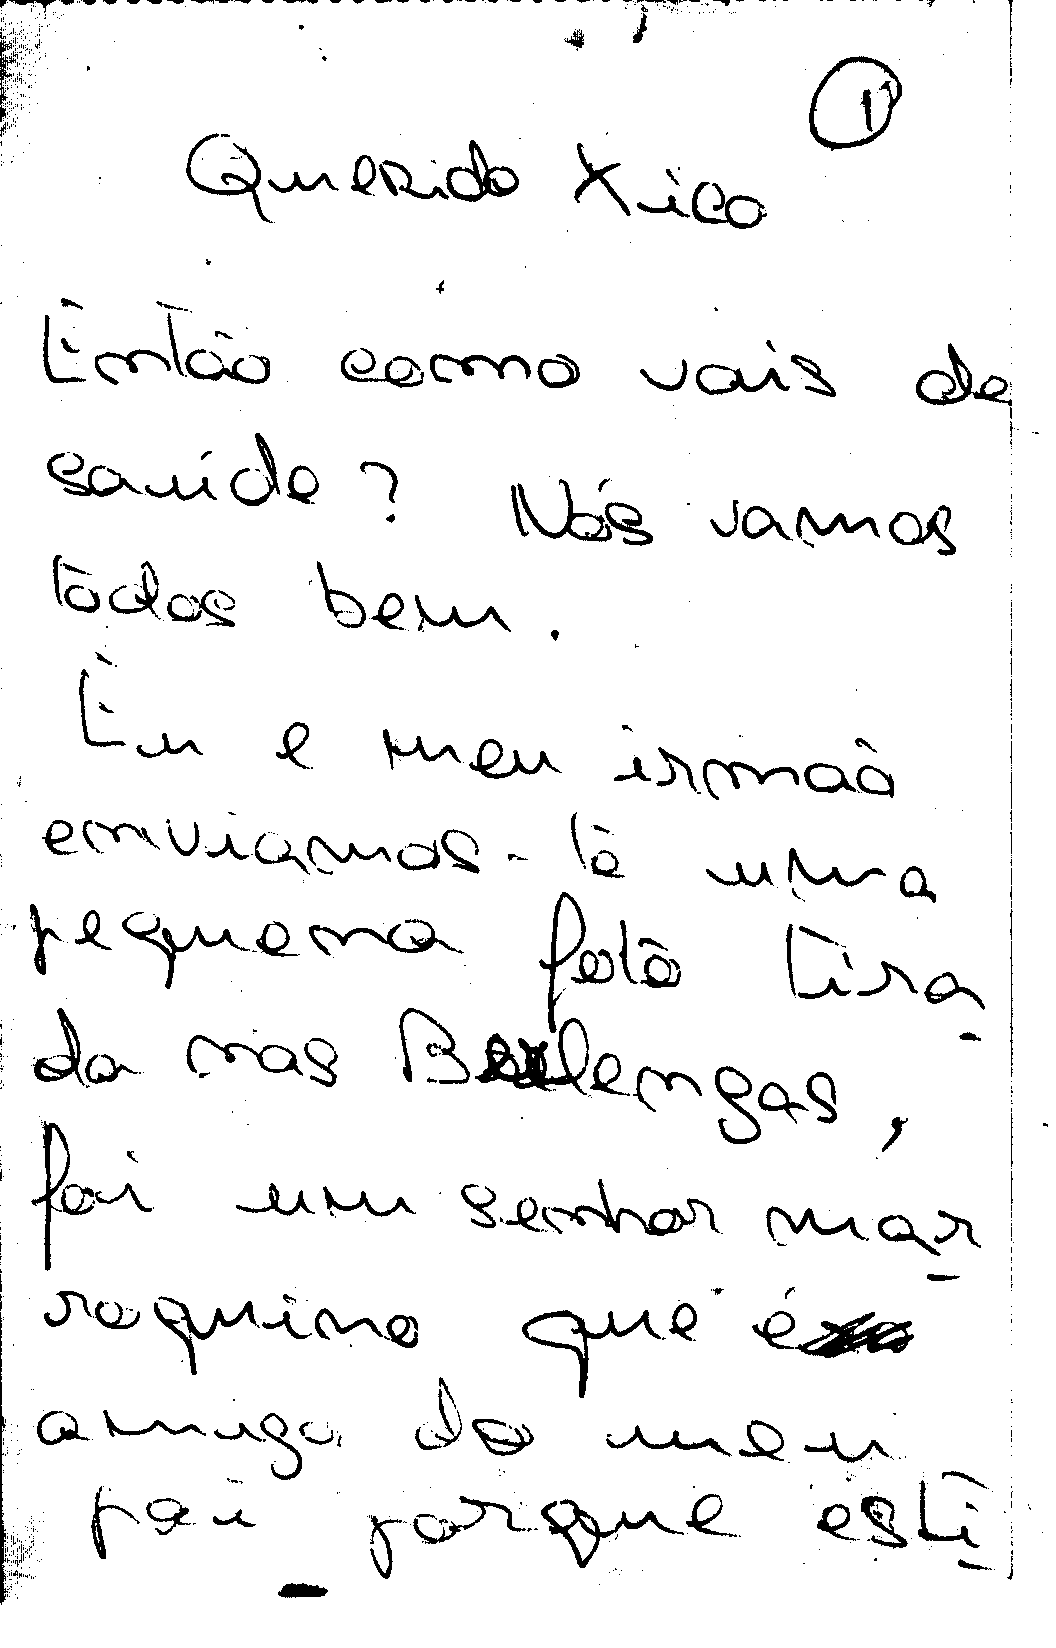 1
Querido Xico
Então como vais de
saúde? Nós vamos
todos bem.
Eu e meu irmão
enviamos-te uma
pequena foto tira-
da nas Berlengas,
foi um senhor mar-
roquino que é
amigo do meu
pai porque esti-